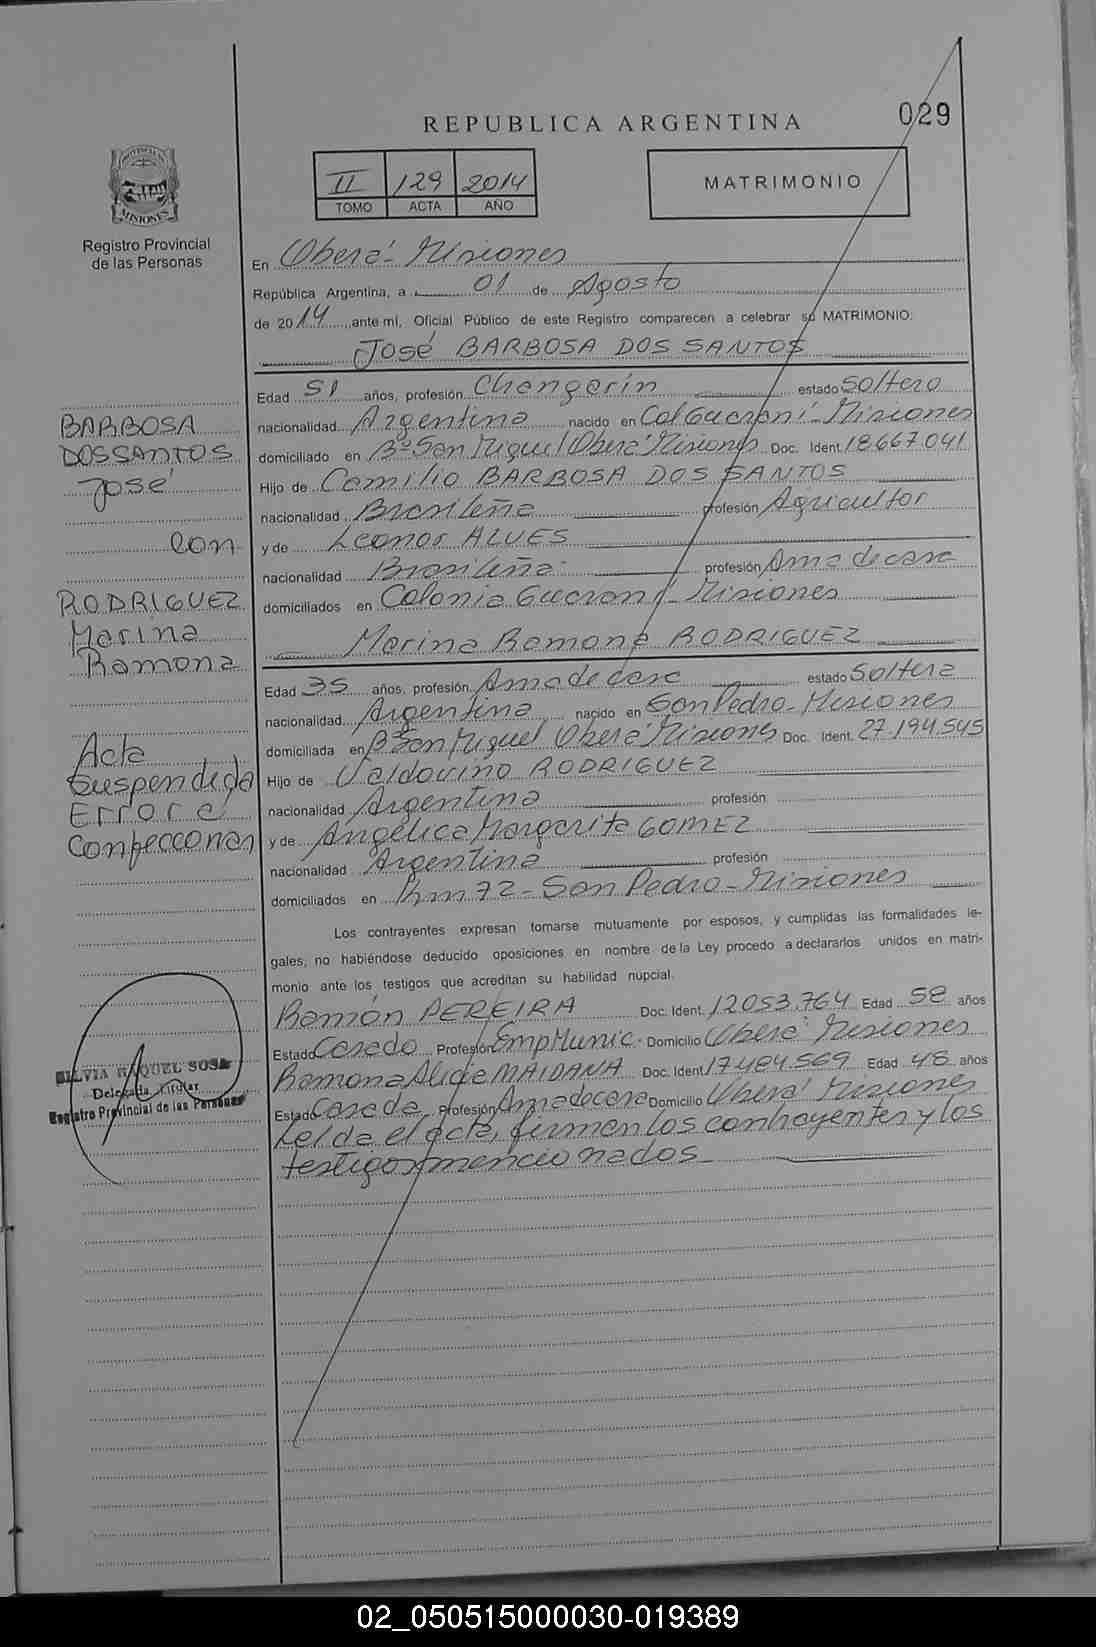 029
REPUBLICA ARGENTINA
II 129 2014
TOMO ACTA AÑO
MATRIMONIO
PROVINCIA DE
MISIONES
Registro Provincial
de las Personas
En Oberá - Misiones
República Argentina, a 01 de Agosto
de 2014, ante mí, Oficial Público de este Registro comparecen a celebrar su MATRIMONIO:
José BARBOSA DOS SANTOS
Edad 51 años, profesión Changarín estado Soltero
nacionalidad Argentina nacido en Col Guaraní - Misiones
domiciliado en Bº San Miguel Oberá Misiones Doc. Ident. 18.667.041
Hijo de Camilio BARBOSA DOS SANTOS
nacionalidad Brasileña profesión Agricultor
y de Leonor ALVES
nacionalidad Brasileña profesión Ama de casa
domiciliados en Colonia Guaraní - Misiones
Marina Ramona RODRIGUEZ
Edad 35 años, profesión Ama de casa estado Soltera
nacionalidad Argentina nacido en San Pedro - Misiones
domiciliada en Bº San Miguel Oberá Misiones Doc. Ident. 27.194.545
Hijo de Valdovino RODRIGUEZ
nacionalidad Argentina profesión
y de Angélica Margarita GOMEZ
nacionalidad Argentina profesión
domiciliados en Km 72 - San Pedro - Misiones
Los contrayentes expresan tomarse mutuamente por esposos, y cumplidas las formalidades le-
gales, no habiéndose deducido oposiciones en nombre de la Ley procedo a declararlos unidos en matri-
monio ante los testigos que acreditan su habilidad nupcial.
Ramón PEREIRA Doc. Ident. 12053.764 Edad 58 años
Estado Casado Profesión Emp Munic. Domicilio Oberá Misiones
Ramona Alide MAIDANA Doc. Ident. 17.484.569 Edad 48 años
Estado Casada Profesión Ama de casa Domicilio Oberá Misiones
Leída el acta, firman los contrayentes y los
testigos mencionados
BARBOSA
DOS SANTOS
José
con
RODRIGUEZ
Marina
Ramona
Acta
Suspendida
Error al
Confeccionar
SILVIA RAQUEL SOSA
Delegada Titular
Registro Provincial de las Personas
02_050515000030-019389